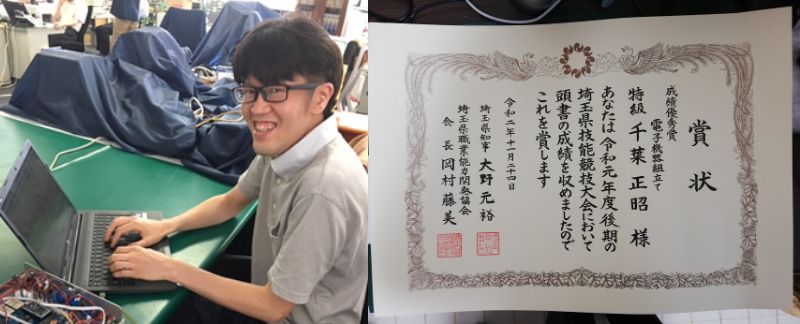 賞状
成績優秀賞
電子機器組立て
特級 千葉 正昭 様
あなたは令和元年度後期の
埼玉県技能競技大会において
頭書の成績を収めましたので
これを賞します
令和二年十一月二十四日
埼玉県知事 大野元裕
埼玉県職業能力開発協会
会長 岡村藤美